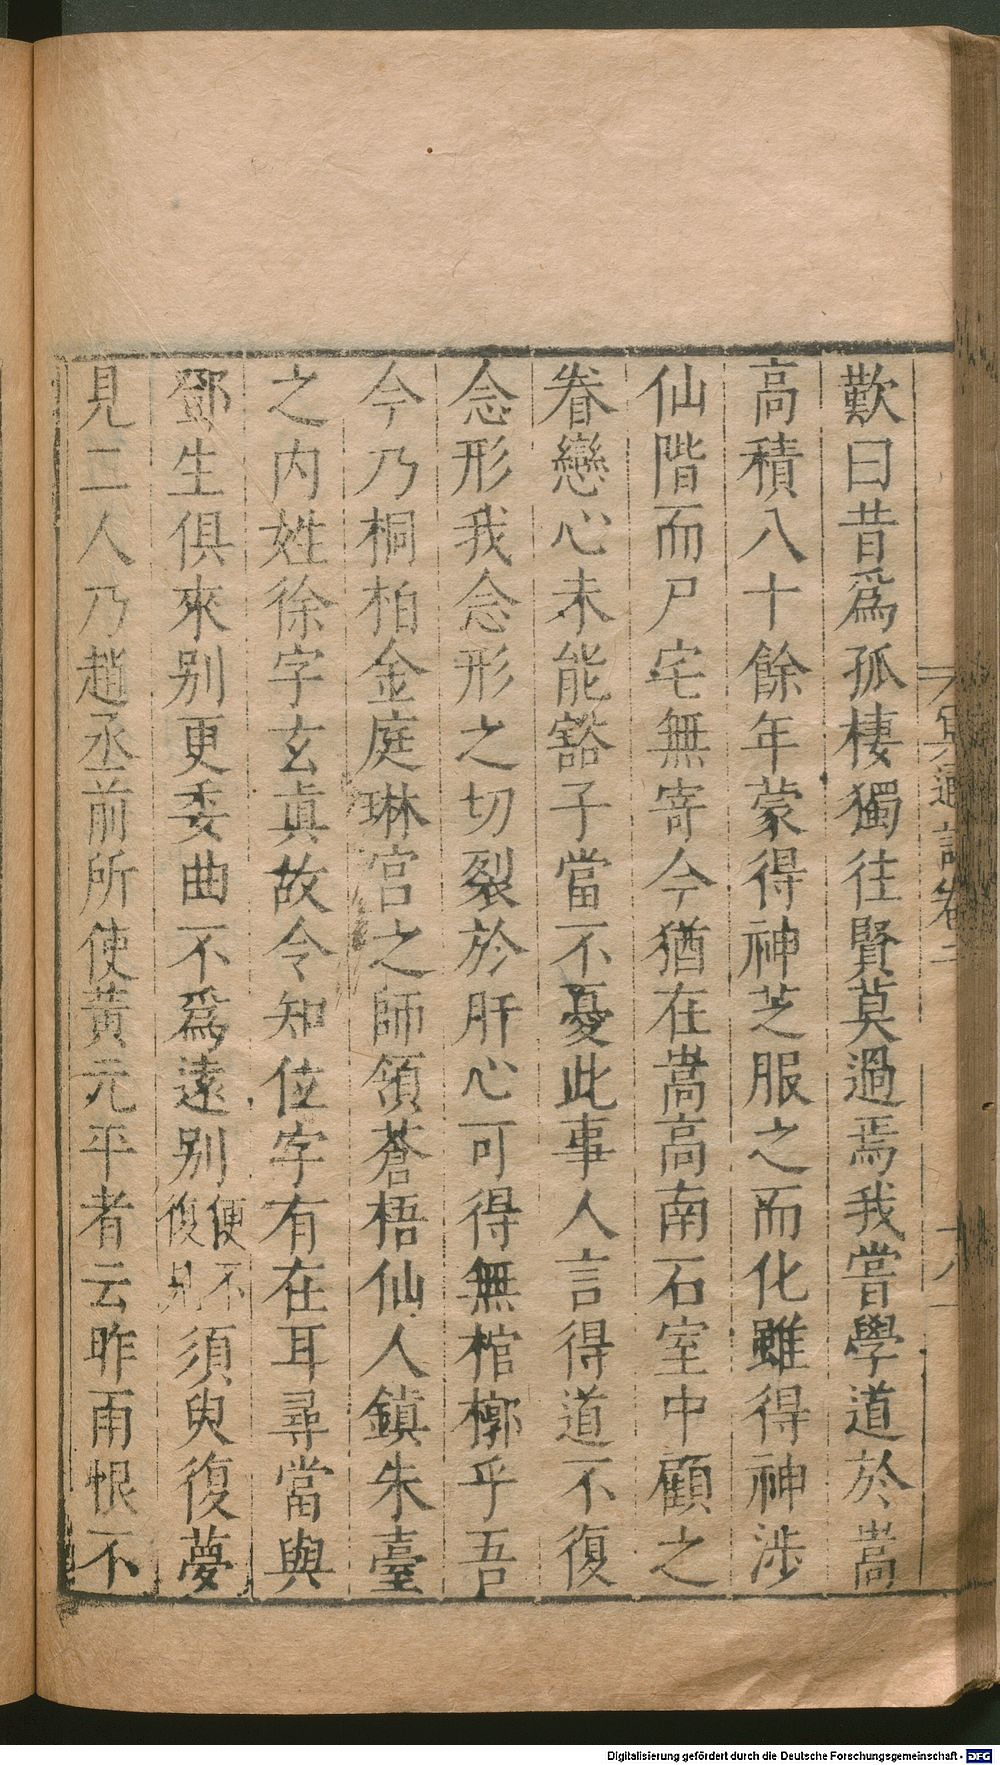 歎曰昔爲孤棲獨往賢莫過焉我嘗學道於嵩
高積八十餘年蒙得神芝服之而化雖得神涉
仙階而尸宅無寄今猶在嵩高南石室中顧之
眷戀心未能豁子當不憂此事人言得道不復
念形我念形之切裂於肝心可得無棺槨乎吾
今乃桐柏金庭琳宮之師領蒼梧仙人鎮朱臺
之内姓徐字玄眞故令知位字有在耳尋當與
鄧生俱來别更委曲不爲遠别便不復見須臾復夢
見二人乃趙丞前所使黃元平者云昨雨恨不
冥通記卷二
十八
Digitalisierung gefördert durch die Deutsche Forschungsgemeinschaft - DFG